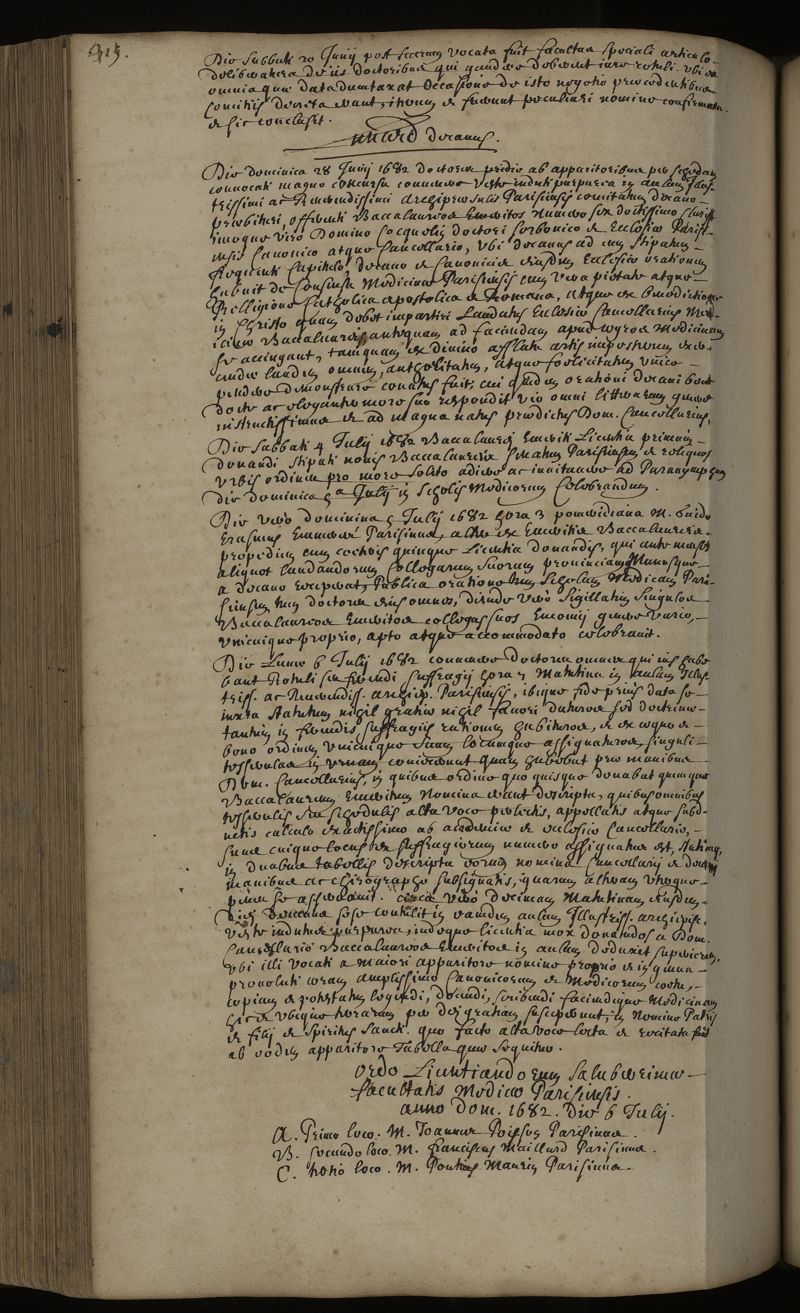 415.
Die Sabbati 20 Junij post sacrum vocata fuit facultas speciali articulo
deliberatura de iis doctoribus qui gaudere debent iure rotuli. ubi ea
omnia quae data dumtaxat occasione de isto negotio praecedentibus
comitiis decreta erant, iterum et fuerunt peculiari nomine confirmata.
et sic conclusit.
decanus.
Die dominica 28 Junij 1682 doctores pridie ab apparitoribus per schedam
convocati magno concursu convenere veste induti purpurea in aulam Illus-
trissimi ac Reverendissimi archipraesulis Parisiensis comitatum decano
praebituri, offerenti Baccalaureos Emeritos numero sex doctissimo
viro Domino Cocquelin doctori Sorbonico et Ecclesiae Parisi-
ensis Canonico atque Cancellario, ubi decanus ad eum stipatum
Capitulo, decano et canonicis eiusdem Ecclesiae orationem
habuit de consensu Medicinae Parisiensis cum vera pietate atque
Relligione Catholica apostolica et Romana, atque ex benedictione
in Christo quam debet impartiri Laudatus Ecclesiae Cancellarius Me-
dicinae Baccalaureis antequam ad faciendam apud aegros Medicinam
se accingant, tamquam ex divino afflatu artis
laudem omnem, autoritatem, atque foelicitatem unice
pendere demonstrare conatus fuit; cui quidem orationi decani
docte ac eleganter more suo respondit vir omni litterarum genere
instructissimus et ad magna natus praedictus Dom. Cancellarius.
Die Sabbati 4 Julij 1682 Baccalaurei Emeriti Licentia primum
donandi stipati novis Baccalaureis Senatum Parisiensem et reliquos
urbis ordines pro more solito adiere ac invitavere ad Paranymphum
die dominica 5a Julij in Scholis Medicorum Celebrandum.
Die vero dominica 5 Julij 1682 hora 3 pomeridiana M. Guido
Erasmus Emmerez Parisinus, alter ex Emeritis Baccalaureis
propediem cum caeteris quinque Licentia donandis, qui ante menses
aliquot laudandorum Collegarum suorum provinciam Munusque
a decano receperat, Publica oratione tum Scholam Medicam Pari-
siensem tum doctores eius omnes, deinde vero Sigillatim Singulos
Baccalaureos Emeritos collegas suos Encomij genere vario,
unicuique proprio, apto atque accommodato celebravit.
Die Lunae 6 Julij 1682 convenere doctores omnes qui ius habe-
bant Rotuli seu ferendi suffragij hora 7 Matutina in aulam Illus-
triss. ac Reverendiss. archiep. Parisiensis, ibique fide prius data se
iuxta statutum nihil gratiae nihil favori daturos sed doctrinae
tantum in ferendis suffragiis rationem habituros, et ex aequo et
bono ordinem unicuique suum locumque assignaturos, singuli
tesserulas in urnam coniecerunt quam habebat prae manibus
Dom. Cancellarius, in quibus ordine quo quisque donabat quinque
Baccalaureorum Emeritorum Nomina erant descripta, quibus omnibus
tesserulis seu schedulis alta voce perlectis, appellatis atque subd-
uctis calculo exactissimo ab academiae et ecclesiae Cancellario,
suus cuique locus ex suffragiorum numero assignatus est, statimque
in duabus tabellis descripta eorum nomina Cancellarij et decani
manibus ac chirographo subsignatis, quarum alteram uterque
penes se asservavit. circa vero decimam Matutinam eiusdem
diei Decanus sese contulit in eamdem aulam Illustriss. archiepisc.
veste indutus purpurea, indeque licentia mox donandos a Dom.
Cancellario Baccalaureos Emeritos in aulam deduxit superiorem,
ubi illi vocati a maiori apparitore nomine proprio et in genua
provoluti coram amplissimo Canonicorum et Medicorum coetu,
copiam et potestatem legendi, docendi, scribendi faciendique Medicinam
hic et ubique terrarum per dei gratiam susceperunt, in Nomine Patris
et Filij et Spiritus Sancti. quo facto alta voce lecta et recitata fuit
ab eodem apparitore Tabella quae sequitur.
Ordo Licentiandorum Saluberrimae
facultatis Medicae Parisiensis.
anno dom. 1682. Die 6 Julij.
A. Primo loco. M. Joannes Poisson Parisinus.
B. secundo loco. M. Franciscus Maillard Parisinus.
C. tertio loco. M. Pontius Maurin Parisinus.